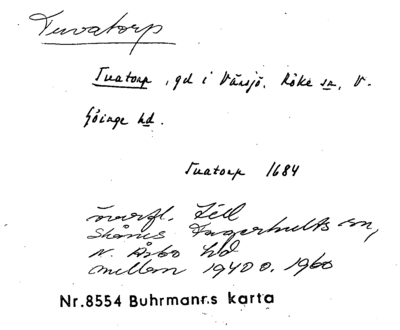 Tuvatorp
Tuatorp, gd i Värsjö. Röke sn, V.
Göinge hd.
Tuatorp 1684
överfl. till
Skånes Fagerhults sn,
N. Åsbo hd
mellan 1940 o. 1960
Nr.8554 Buhrmann:s karta